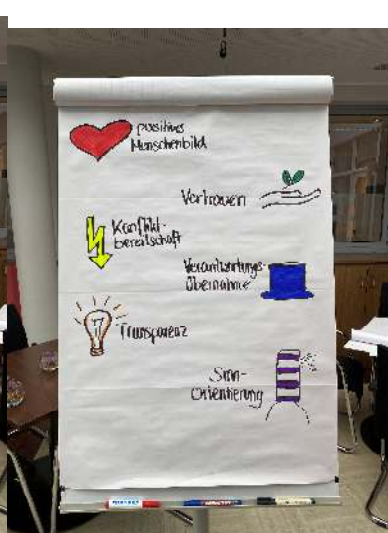 positives
Menschenbild
Vertrauen
Konflikt-
bereitschaft
Verantwortungs-
übernahme
Transparenz
Sinn-
Orientierung